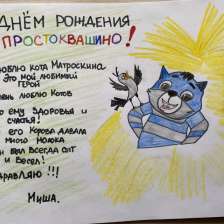 ДНЁМ РОЖДЕНИЯ
ПРОСТОКВАШИНО!
люблю кота Матроскина
Это мой любимый
герой
очень люблю Котов
ему Здоровья и
счастья!
его Корова давала
много молока
он был Всегда сыт
и Весел!
здравляю!!!
Миша.